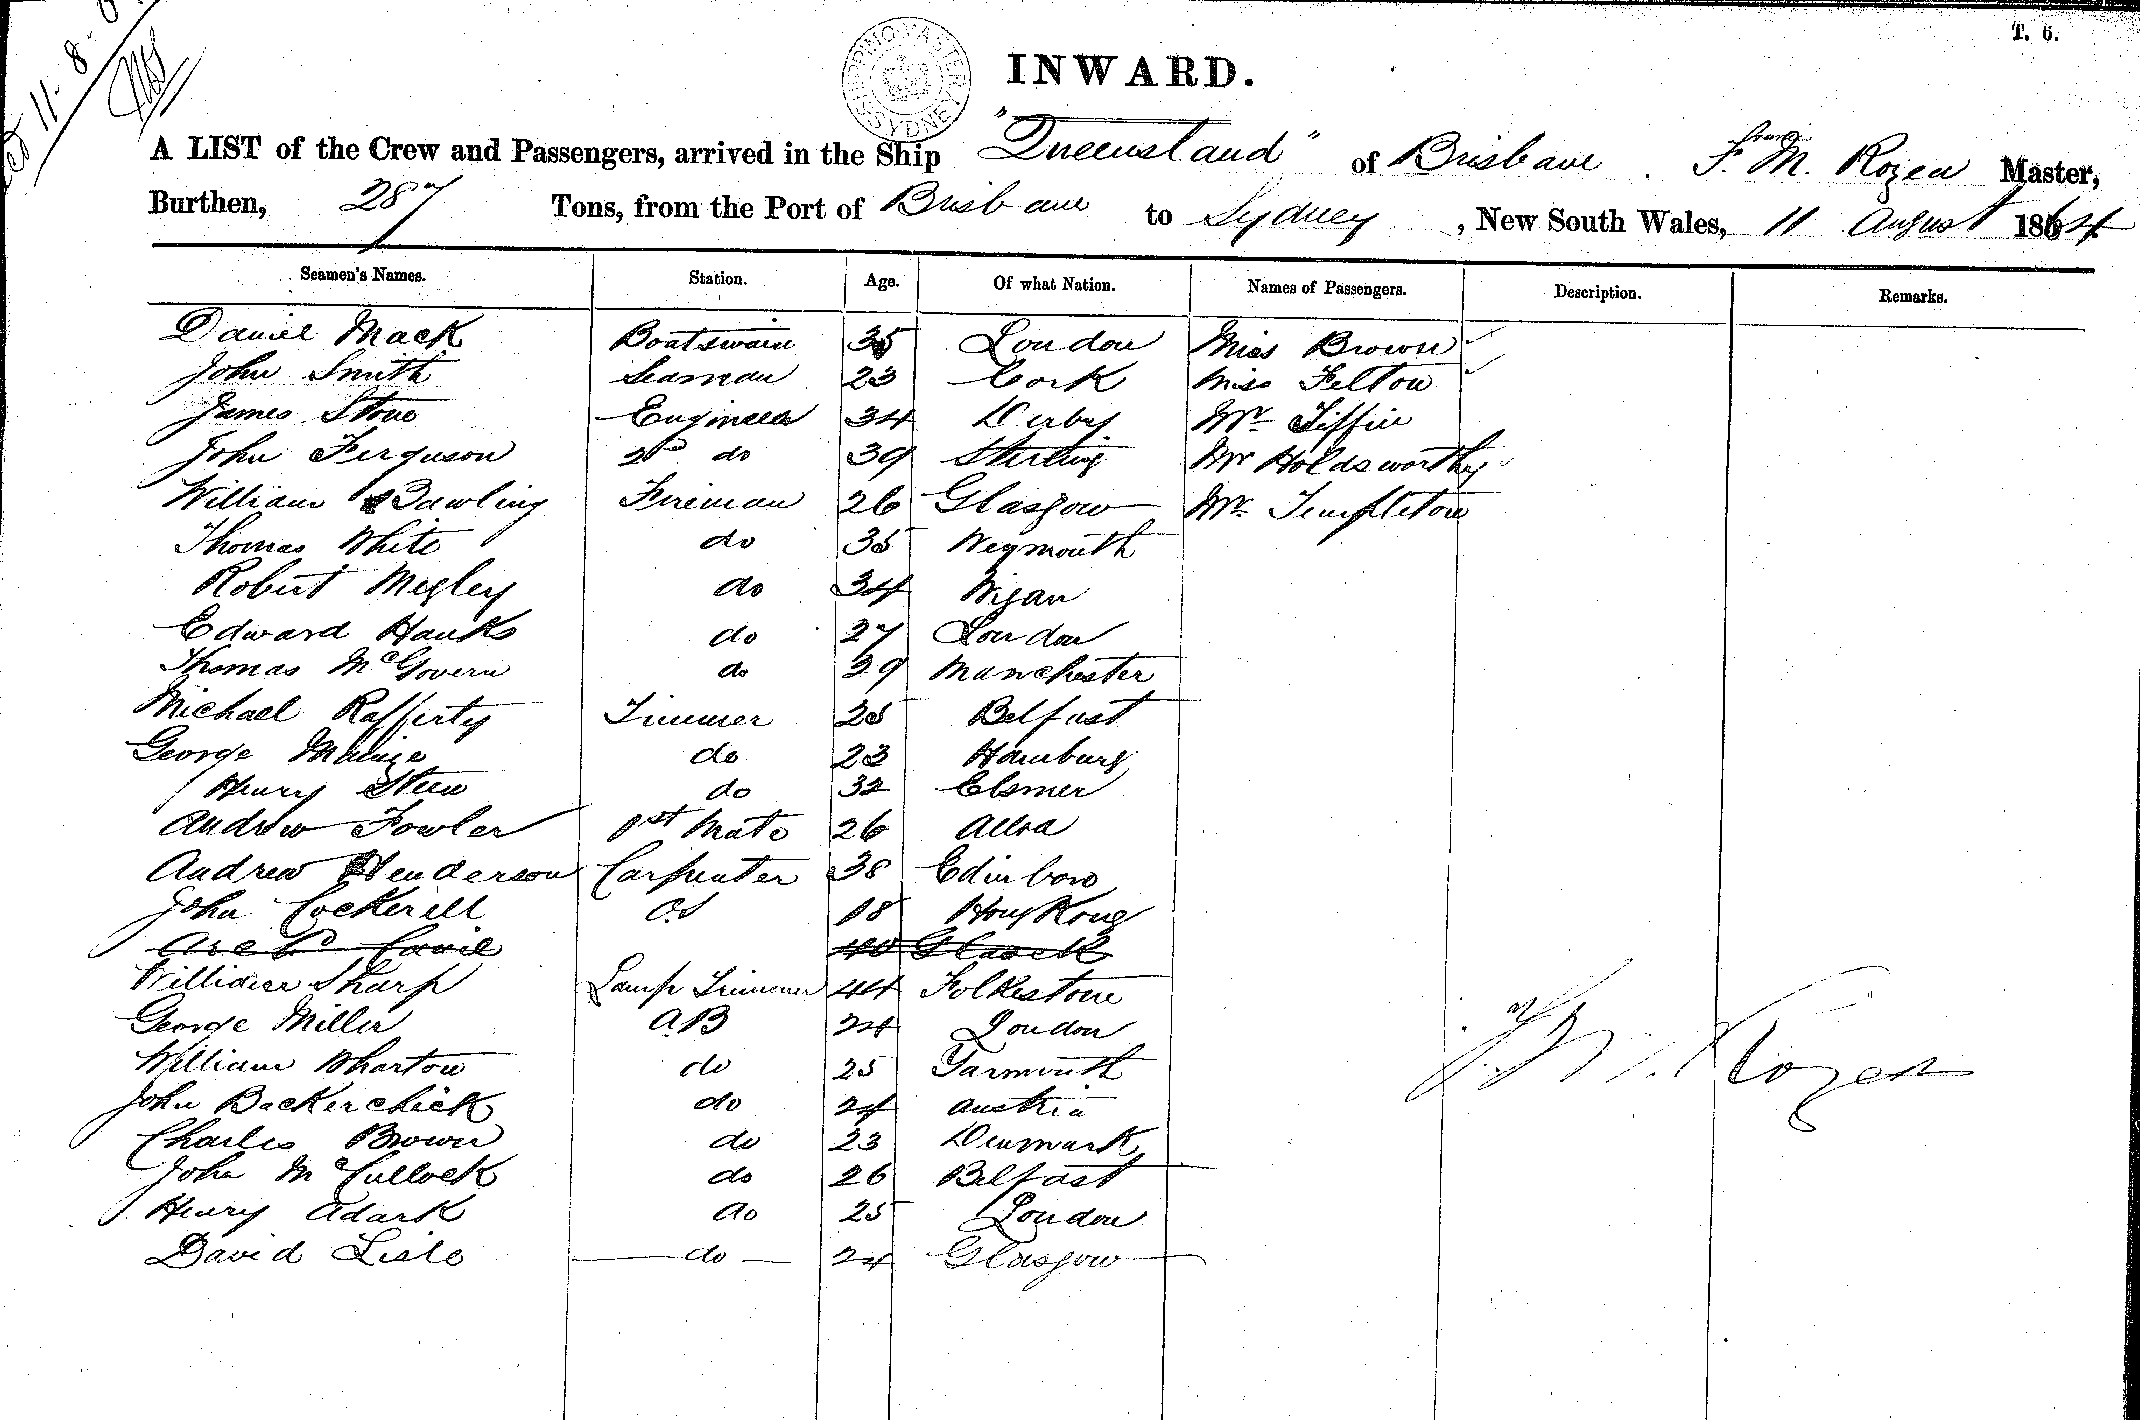 T. 6.
INWARD.
A LIST of the Crew and Passengers, arrived in the Ship "Queensland" of Brisbane F. M. Rozea Master,
Burthen, 287 Tons, from the Port of Brisbane to Sydney, New South Wales, 11 August 1864
Seamen's Names. Station. Age. Of what Nation. Names of Passengers. Description. Remarks.
Daniel Mack Boatswain 35 London Miss Brown
John Smith Seaman 23 Cork Miss Felton
James Stone Engineer 34 Derby Mr Tiffin
John Ferguson 2d do 39 Stirling Mr Holdsworthy
William Bawling Fireman 26 Glasgow Mr Templeton
Thomas White do 35 Weymouth
Robert Megley do 34 Wigan
Edward Hanks do 27 London
Thomas McGovern do 29 Manchester
Michael Rafferty Trimmer 25 Belfast
George do 23 Hamburg
Henry Steen do 32 Elsmer
Andrew Fowler 1st Mate 26 Alloa
Andrew Henderson Carpenter 38 Edinboro
John Cockerill O.S 18 Hong Kong
40
William Sharp Lamp Trimmer 44 Folkestone
George Miller A.B 24 London
William Wharton do 25 Yarmouth
John Backerchick do 24 Austria
Charles Brown do 23 Denmark
John McCullock do 26 Belfast
Henry Adark do 25 London
David Lisle do 24 Glasgow
F. M. Rozea